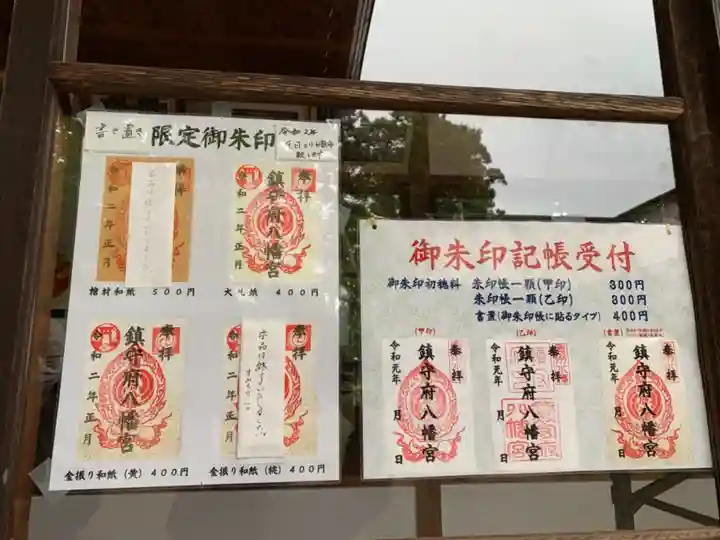 書き置き
限定御朱印
令和2年
奉拝
令和二年正月
檜材和紙 500円
奉拝
鎮守府八幡宮
令和二年正月
400円
奉拝
鎮守府八幡宮
令和二年正月
金振り和紙(黄) 400円
奉拝
令和二年正月
金振り和紙(桃) 400円
御朱印記帳受付
御朱印初穂料 朱印帳一願(甲印) 300円
朱印帳一願(乙印) 300円
書置(御朱印帳に貼るタイプ) 400円
(甲印)
奉拝
鎮守府八幡宮
令和元年 月 日
(乙印)
奉拝
鎮守府八幡宮
令和元年 月 日
(書置)
奉拝
鎮守府八幡宮
令和元年 月 日